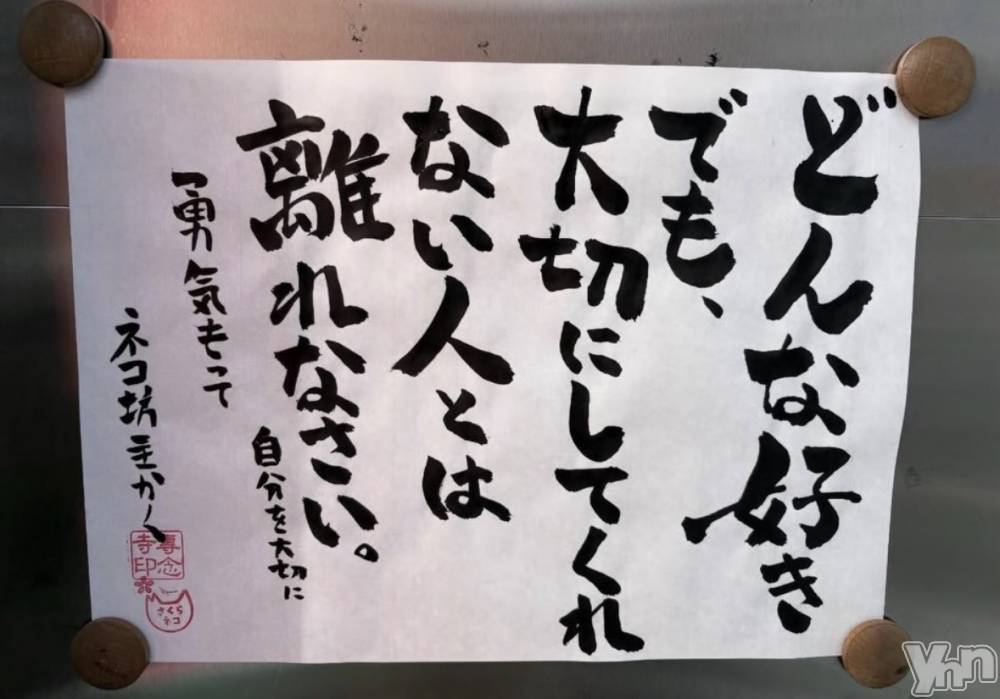 どんな好き
でも、
大切にしてくれ
ない人とは
離れなさい。
自分を大切に
勇気もって
ネコ坊主かく
専念
寺印
さくら
ネコ
Yhn